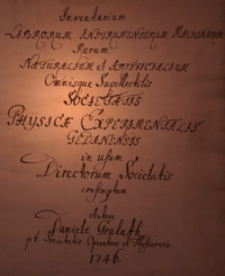 Inventarium
LIBRORUM INSTRUMENTORUM MACHINARUM
Rerum
NATURALIUM et ARTIFICIALIUM
Omnisque Supellectilis
SOCIETATIS
PHYSICÆ EXPERIMENTALIS
GEDANENSIS
in usum
Directorum Societatis
conscriptum
Autore
Daniele Gralath
p.t. Societatis Operatore et
1746.